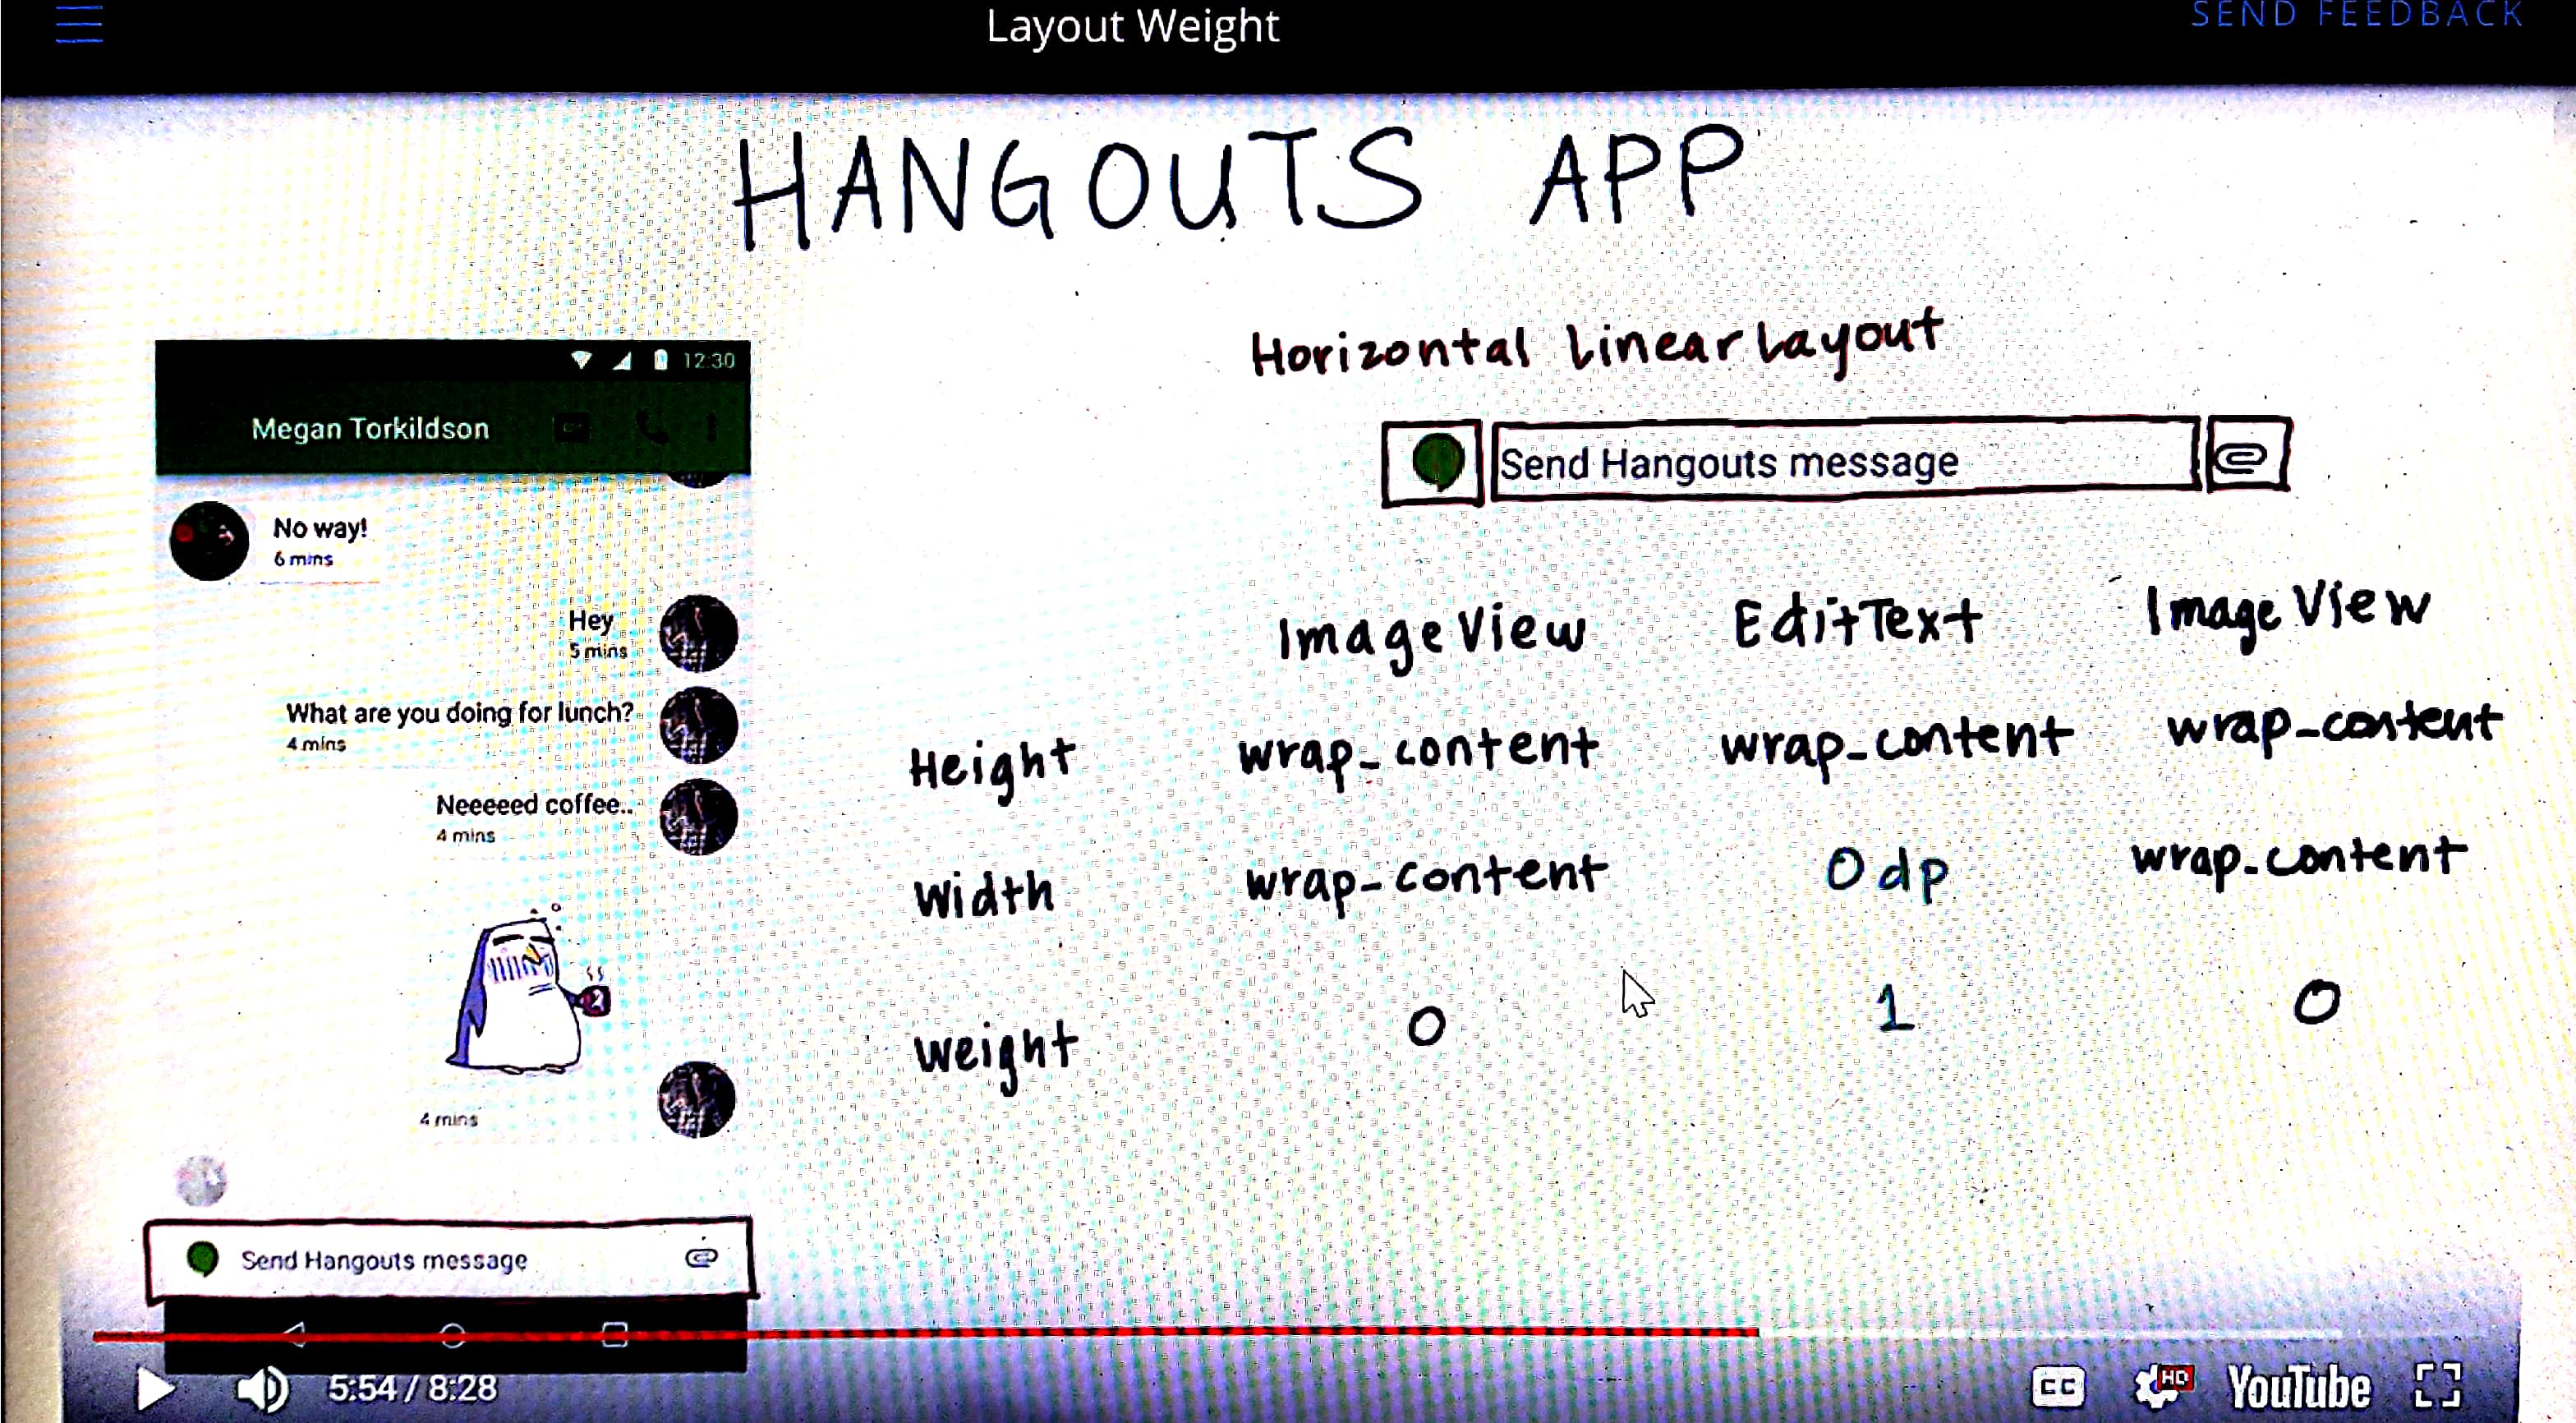 Layout Weight
SEND FEEDBACK
HANGOUTS APP
12:30
Megan Torkildson
No way!
6 mins
Hey
5 mins
What are you doing for lunch?
4 mins
Neeeeed coffee..
4 mins
4 mins
Send Hangouts message
Horizontal LinearLayout
Send Hangouts message
ImageView EditText ImageView
Height wrap_content wrap_content wrap_content
Width wrap_content 0dp wrap_content
Weight 0 1 0
5:54 / 8:28
CC HD YouTube